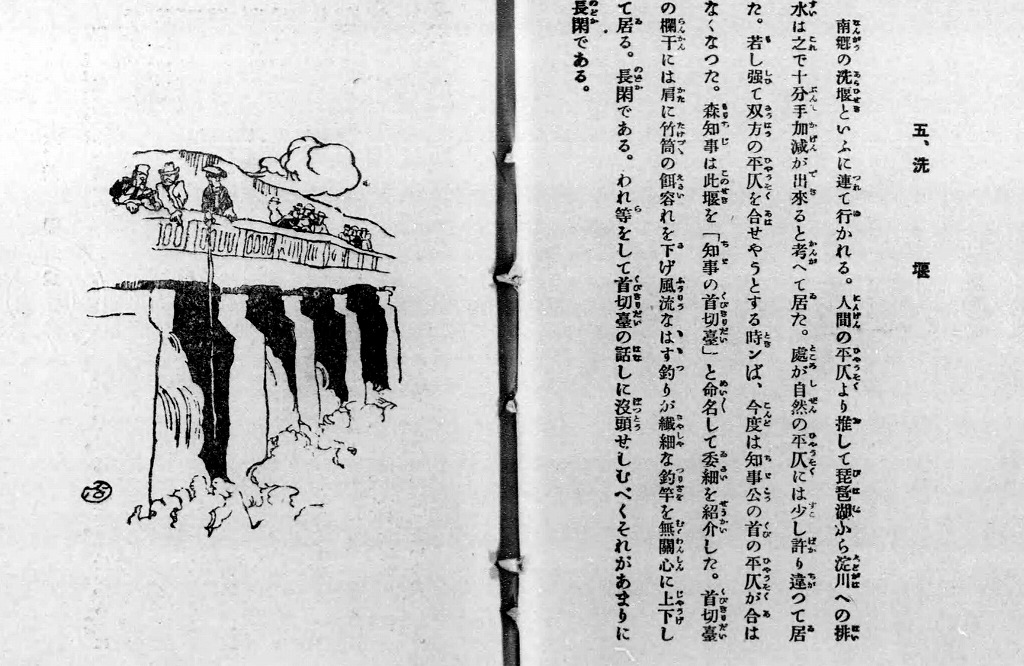 五、洗堰
南鄕の洗堰といふに連て行かれる。人間の平仄より推して琵琶湖から淀川への排
水は之で十分手加減が出來ると考へて居た。處が自然の平仄には少し許り違つて居
た。若し强て双方の平仄を合せやうとする時ンば、今度は知事公の首の平仄が合は
なくなつた。森知事は此堰を「知事の首切臺」と命名して委細を紹介した。首切臺
の欄干には肩に竹筒の餌容れを下げ風流なはす釣りが纖細な釣竿を無關心に上下し
て居る。長閑である。われ等をして首切臺の話しに沒頭せしむべくそれがあまりに
長閑である。